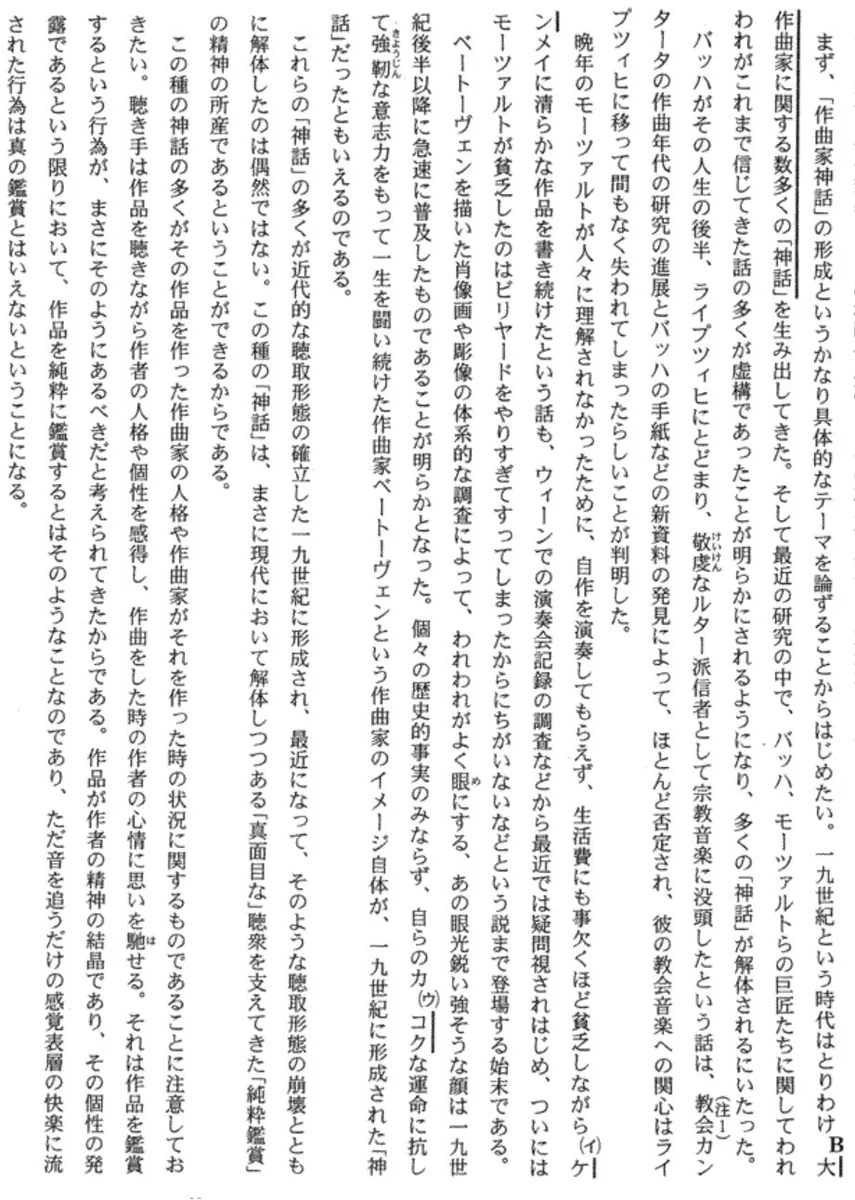 まず、「作曲家神話」の形成というかなり具体的なテーマを論ずることからはじめたい。一九世紀という時代はとりわけB大
作曲家に関する数多くの「神話」を生み出してきた。そして最近の研究の中で、バッハ、モーツァルトらの巨匠たちに関してわれ
われがこれまで信じてきた話の多くが虚構であったことが明らかにされるようになり、多くの「神話」が解体されるにいたった。
バッハがその人生の後半、ライプツィヒにとどまり、敬虔けいけんなルター派信者として宗教音楽に没頭したという話は、教会カン(注1)
タータの作曲年代の研究の進展とバッハの手紙などの新資料の発見によって、ほとんど否定され、彼の教会音楽への関心はライ
プツィヒに移って間もなく失われてしまったらしいことが判明した。
晩年のモーツァルトが人々に理解されなかったために、自作を演奏してもらえず、生活費にも事欠くほど貧乏しながら(イ)ケ
ンメイに清らかな作品を書き続けたという話も、ウィーンでの演奏会記録の調査などから最近では疑問視されはじめ、ついには
モーツァルトが貧乏したのはビリヤードをやりすぎてすってしまったからにちがいないなどという説まで登場する始末である。
ベートーヴェンを描いた肖像画や彫像の体系的な調査によって、われわれがよく眼めにする、あの眼光鋭い強そうな顔は一九世
紀後半以降に急速に普及したものであることが明らかとなった。個々の歴史的事実のみならず、自らのカ(ウ)コクな運命に抗し
て強靭きょうじんな意志力をもって一生を闘い続けた作曲家ベートーヴェンという作曲家のイメージ自体が、一九世紀に形成された「神
話」だったともいえるのである。
これらの「神話」の多くが近代的な聴取形態の確立した一九世紀に形成され、最近になって、そのような聴取形態の崩壊ととも
に解体したのは偶然ではない。この種の「神話」は、まさに現代において解体しつつある「真面目な」聴衆を支えてきた「純粋鑑賞」
の精神の所産であるということができるからである。
この種の神話の多くがその作品を作った作曲家の人格や作曲家がそれを作った時の状況に関するものであることに注意してお
きたい。聴き手は作品を聴きながら作者の人格や個性を感得し、作曲をした時の作者の心情に思いを馳はせる。それは作品を鑑賞
するという行為が、まさにそのようにあるべきだと考えられてきたからである。作品が作者の精神の結晶であり、その個性の発
露であるという限りにおいて、作品を純粋に鑑賞するとはそのようなことなのであり、ただ音を追うだけの感覚表層の快楽に流
された行為は真の鑑賞とはいえないということになる。